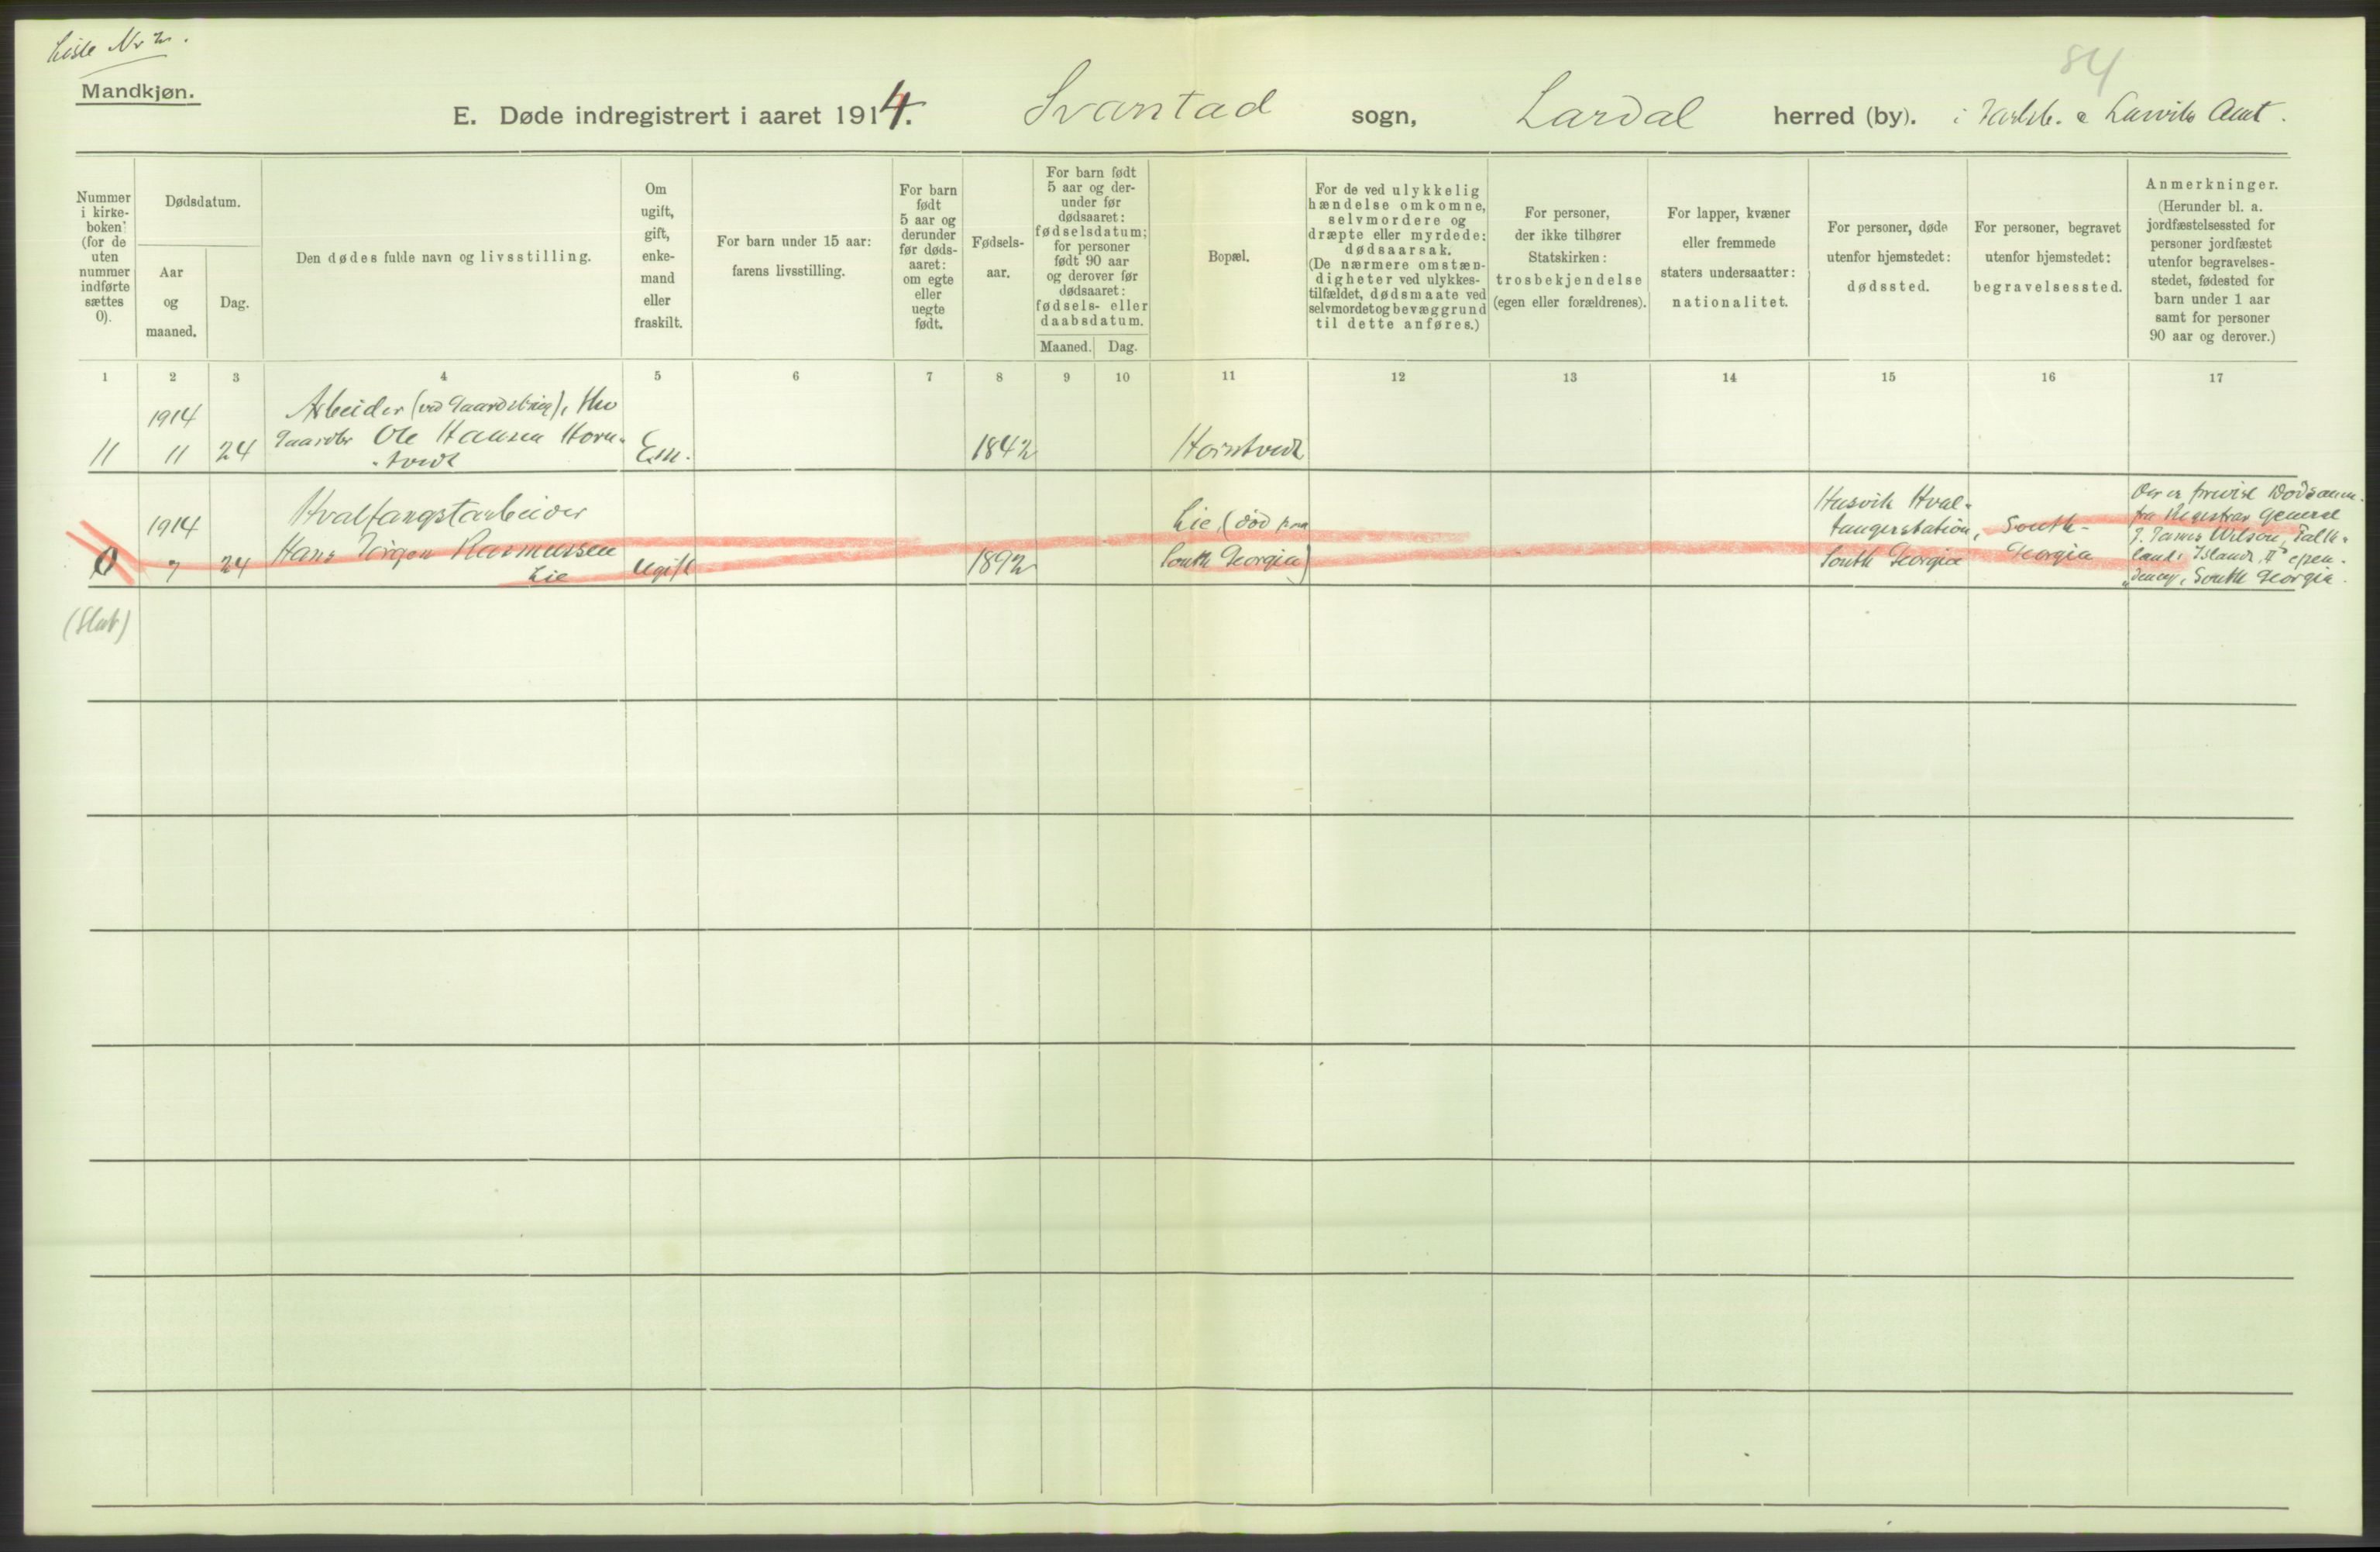 Liste Nr 2.
Mandkjøn.
84
E. Døde indregistrert i aaret 1914. Svarstad sogn, Lardal herred (by). i Jarlsb. & Larviks Amt.
Nummer
i kirke-
boken
(for de
uten
nummer
indførte
sættes
0).
Dødsdatum.
Aar
og
maaned.
Dag.
Den dødes fulde navn og livsstilling.
Om
ugift,
gift,
enke-
mand
eller
fraskilt.
For barn under 15 aar:
farens livsstilling.
For barn
født
5 aar og
derunder
før døds-
aaret:
om egte
eller
uegte
født.
Fødsels-
aar.
For barn født
5 aar og der-
under før
dødsaaret:
fødselsdatum;
for personer
født 90 aar
og derover før
dødsaaret:
fødsels- eller
daabsdatum.
Maaned. Dag.
Bopæl.
For de ved ulykkelig
hændelse omkomne,
selvmordere og
dræpte eller myrdede:
dødsaarsak.
(De nærmere omstæn-
digheter ved ulykkes-
tilfældet, dødsmaate ved
selvmordet og bevæggrund
til dette anføres.)
For personer,
der ikke tilhører
Statskirken:
trosbekjendelse
(egen eller forældrenes).
For lapper, kvæner
eller fremmede
staters undersaatter:
nationalitet.
For personer, døde
utenfor hjemstedet:
dødssted.
For personer, begravet
utenfor hjemstedet:
begravelsessted.
Anmerkninger.
(Herunder bl. a.
jordfæstelsessted for
personer jordfæstet
utenfor begravelses-
stedet, fødested for
barn under 1 aar
samt for personer
90 aar og derover.)
1 2 3 4 5 6 7 8 9 10 11 12 13 14 15 16 17
11
1914
11
24
Arbeider (ved Gaardsbrug),
Gaardbr Ole Hansen Horn-
tvedt
Em.
1842
Horntvedt
0
1914
7
24
Hvalfangstarbeider
Hans Jørgen Rasmussen
Lie
Ugift
1892
Lie, (død paa
South Georgia)
Husvik Hval-
fangerstation,
South Georgia
South-
Georgia
Der er forevist Dødsanm.
fra Registrar General
J. Innes Wilson, Falk-
lands Islands, Depen-
dency, South Georgia.
(Slut)